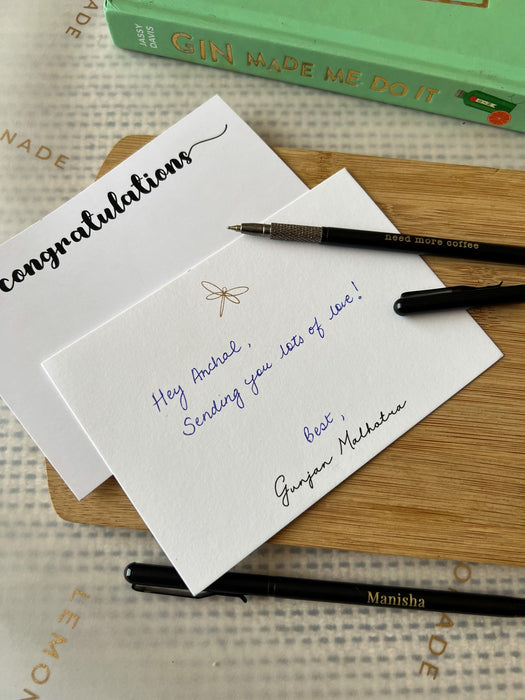 JASSY
DAVIS
GIN MADE ME DO IT
NADE
congratulations
need more coffee
Hey Anchal,
Sending you lots of love!
Best,
Gunjan Malhotra
Manisha
LEMON